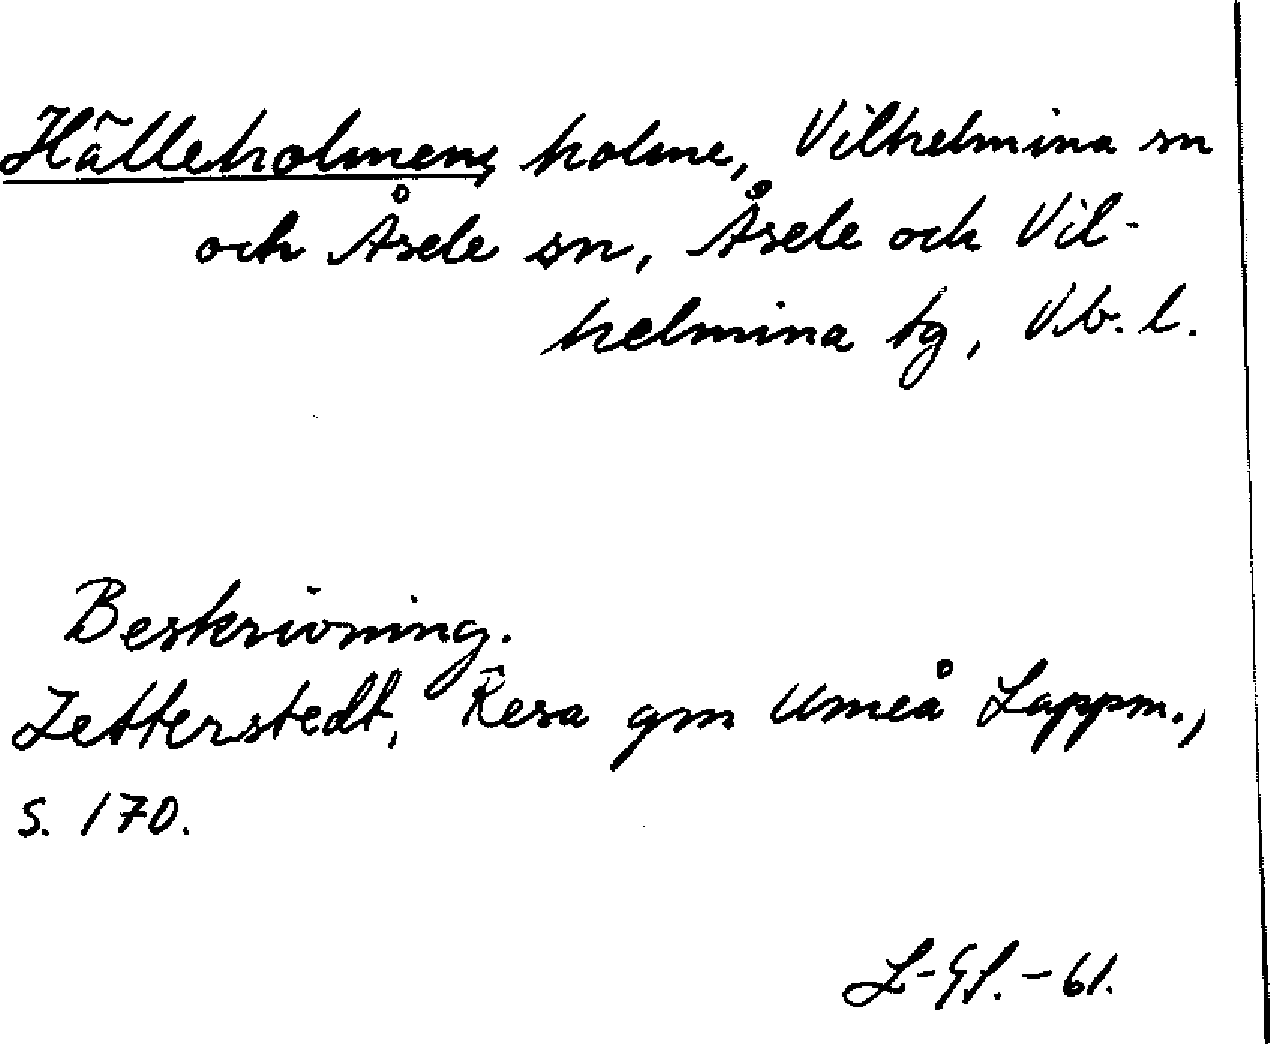 Hälleholmen, holme, Vilhelmina sn
och Åsele sn, Åsele och Vil-
helmina tg, Vb. l.
Beskrivning.
Zetterstedt, Resa gm Umeå Lappm.,
s. 170.
L-GS. -61.